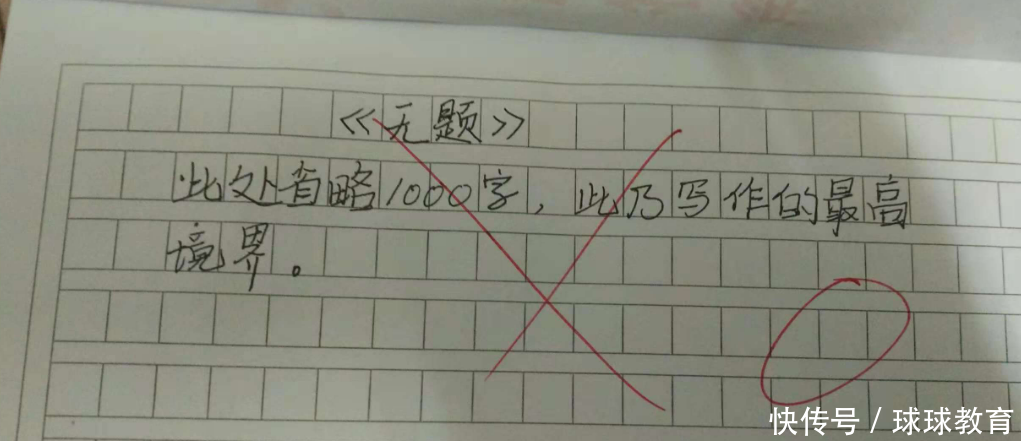 《无题》
此处省略1000字,此乃写作的最高
境界。
快传号 / 球球教育